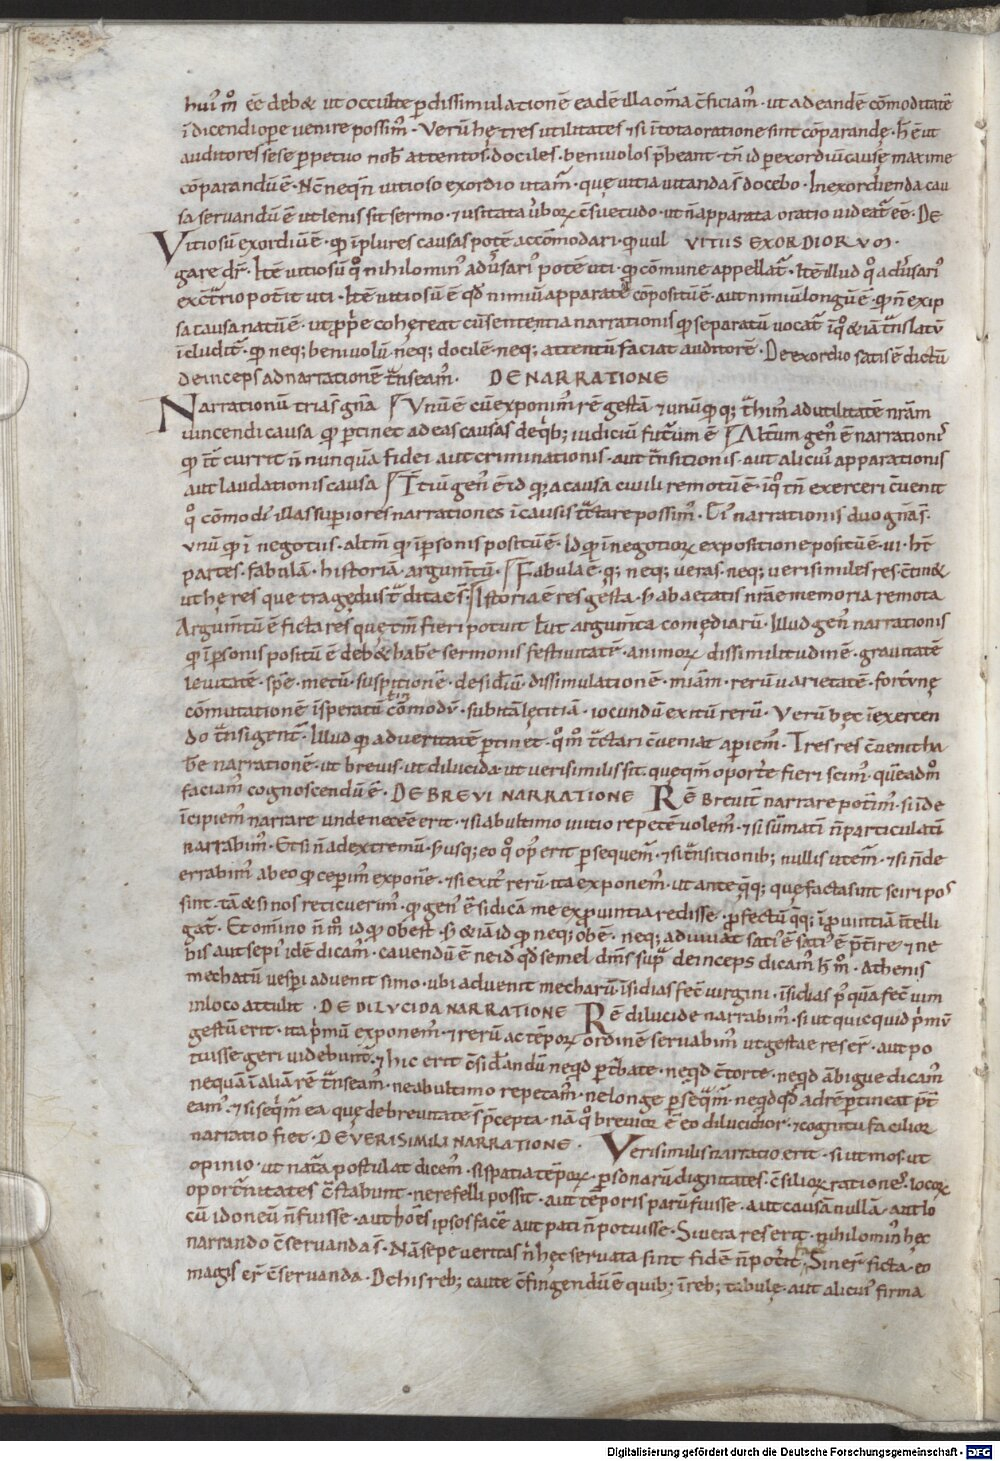 hui' m̊ ēē deb& ut occulte ꝑ dissimulationē eadē illa om̄a c̄ficiam᷒ · ut ad eandē cōmoditatē
ī dicendi oꝑe venire possim᷒ · Verū hę tres utilitates ⁊ si ī tota oratione sint cōparandę · h̄ ē ut
auditores sese ꝑpetuo nob̄ attentos · dociles · benivolos p̄beant · tn̄ id ꝑ exordiū causę maxime
cōparandū ē · Nc̄ neq̄n vitioso exordio utam᷒ · quę vitia vitanda s̄ docebo · In exordienda cau
sa servandū ē ut lenis sit sermo · ⁊ usitata v̄boꝝ c̄suetudo · ut n̄ apparata oratio videat᷒ ēē · DE
Vitiosū exordiū ē · qđ ī plures causas potē accōmodari · qđ vul VITIIS EXORDIORVM ·
gare dr̄ · Itē vitiosū q̊ nihilomin᷒ adv̄sari᷒ potē uti · qđ cōmune appellat᷒ · Itē illud q̊ adv̄sari᷒
ex c̄trio pot̄it uti · Itē vitiosū ē qđ nimiū apparate cōpositū ē · aut nimiū longū ē · qđ n̄ ex ip
sa causa natū ē · ut ꝓpꝛie cohereat cū sententia narrationis qđ separatū vocat᷒ īq̊ &iā t̄nslatū
īcludit᷒ · qđ neq; benivolū · neq; docilē · neq; attentū faciat auditorē · De exordio satis ē dictū
deinceps ad narrationē t̄nseam᷒ · DE NARRATIONE
Narrationū tria s̄ gn̄a Vnū ē cū exponim᷒ rē gestā ⁊ unū qđq; t̄him᷒ ad utilitatē nr̄am
vincendi causa qđ ꝑtinet ad eas causas de q̄b; iudiciū futurū ē Altm̄ gen᷒ ē narrationis
qđ īt̄currit n̄nunquā fidei aut criminationis · aut t̄nsitionis · aut alicui᷒ apparationis
aut laudationis causa Ttiū gen᷒ ē id qđ a causa civili remotū ē · īq̊ tn̄ exerceri c̄venit
q̊ cōmodi᷒ illas superiores narrationes ī causis t̄ctare possim᷒ · Ei᷒ narrationis duo gn̄a s̄ ·
unū qđ ī negotiis · altm̄ qđ ī ꝑsonis positū ē · Id qđ ī negotioꝝ expositione positū ē · III · ht̄
partes · fabulā · historiā · argum̄tū · Fabula ē · quę neq; veras · neq; verisimiles res c̄tin&
ut hę res quę tragędiis t̄ditae s̄ Istoria ē res gesta · s; ab aetatis nr̄ae memoria remota
Argum̄tū ē ficta res quę tm̄ fieri potuit velut argum̄ta comediarū · Illud gen᷒ narrationis
qđ ī ꝑsonis positū ē deb& hab̄e sermonis festivitatē · animoꝝ dissimilitudinē · gravitatē
levitatē · spē · metū · suspitionē · desid̄iū · dissimulationē · mi̅am · rerū varietatē · fortunę
cōmutationē īsperatū īcōmodū · subitā lętitiā · iocundū exitū rerū · Verū hęc ī exercen
do t̄nsigent᷒ · Illud qđ ad veritatē ꝑtinet · q̊m̊ t̄ctari c̄veniat aꝑiem᷒ · Tres res c̄venit ha
b̄e narrationē · ut brevis · ut dilucida · ut verisimilis sit · quęqm̄ oport̄e fieri scim᷒ · quēadm̊
faciam᷒ cognoscendū ē · DE BREVI NARRATIONE Rē brevit̄ narrare pot̄im᷒ · si īde
īcipiem᷒ narrare unde necēē erit · ⁊ si ab ultimo initio repetē volem᷒ · ⁊ si sūmatī n̄ particulatī
narrabim᷒ · Et si n̄ ad extremū · s; usq; eo q̊ op᷒ erit ꝑsequem᷒ · ⁊ si t̄nsitionib; nullis utem᷒ · ⁊ si n̄ de
errabim᷒ ab eo qđ cepim᷒ expon̄e · ⁊ si exit᷒ rerū ita exponem᷒ · ut ante q̄q; quę facta sunt sciri pos
sint · tā & si nos reticuerim᷒ · qđ gen᷒ ē si dicā me ex ꝓvintia redisse · ꝓfectū q̄q; ī ꝓvintiā īt̄elli
gat᷒ · Et omīno n̄ m̊ id qđ obest · s; &iā id qđ neq; obē · neq; adiuvat sati᷒ ē sati᷒ ē p̄t̄ire · ⁊ ne
bis aut sepi᷒ idē dicam᷒ · cavendū ē ne id qđ semel dim᷒s sup᷒ deinceps dicam᷒ h̄ m̊ · Athenis
mechatū vesꝑi advenit simo · ubi advenit mecharū īsidias fec̄ virgini · īsidias p᷒quā fec̄ vim
in loco attulit · DE DILVCIDA NARRATIONE Rē dilucide narrabim᷒ · si ut quicquid p̄mū
gestū erit · ita p̄mū exponem᷒ · ⁊ rerū ac tēpoꝝ ordinē servabim᷒ ut gestae res er̄ · aut po
tuisse geri videbunt᷒ · ⁊ hic erit c̄sid̄andū neqđ ꝑt̄bate · neqđ c̄torte · neqđ ābigue dicam᷒
nequā ī aliā rē t̄nseam᷒ · ne ab ultimo repetam᷒ · ne longe ꝑseq̄m᷒ · neqđ qđ ad rē ꝑtineat p̄t̄
eam᷒ · ⁊ si seq̄m᷒ ea quę de brevitate s̄ p̄cepta · nā q̊ brevior ē eo dilucidior · ⁊ cognitu facilior
narratio fiet · DE VERISIMILI NARRATIONE · Verisimilis narratio erit · si ut mos · ut
opinio · ut natura postulat dicem᷒ · si spatia tēpoꝝ · ꝑsonarū dignitates · c̄silioꝝ rationes · locoꝝ
oport̄nitates c̄stabunt · ne refelli possit · aut tēporis parū fuisse · aut causā nullā · aut lo
cū idoneū n̄ fuisse · aut hoēs ipsos facē aut pati n̄ potuisse · Si vera res erit · nihilomin᷒ hęc
narrando c̄servanda s̄ · Nā sepe veritas n̄ hęc servata sint fidē n̄ pot̄it · Sin er̄ ficta · eo
magis er̄ c̄servanda · De his reb; caute c̄fingendū ē quib; ī reb; tabulę · aut alicui᷒ firma
Digitalisierung gefördert durch die Deutsche Forschungsgemeinschaft - DFG